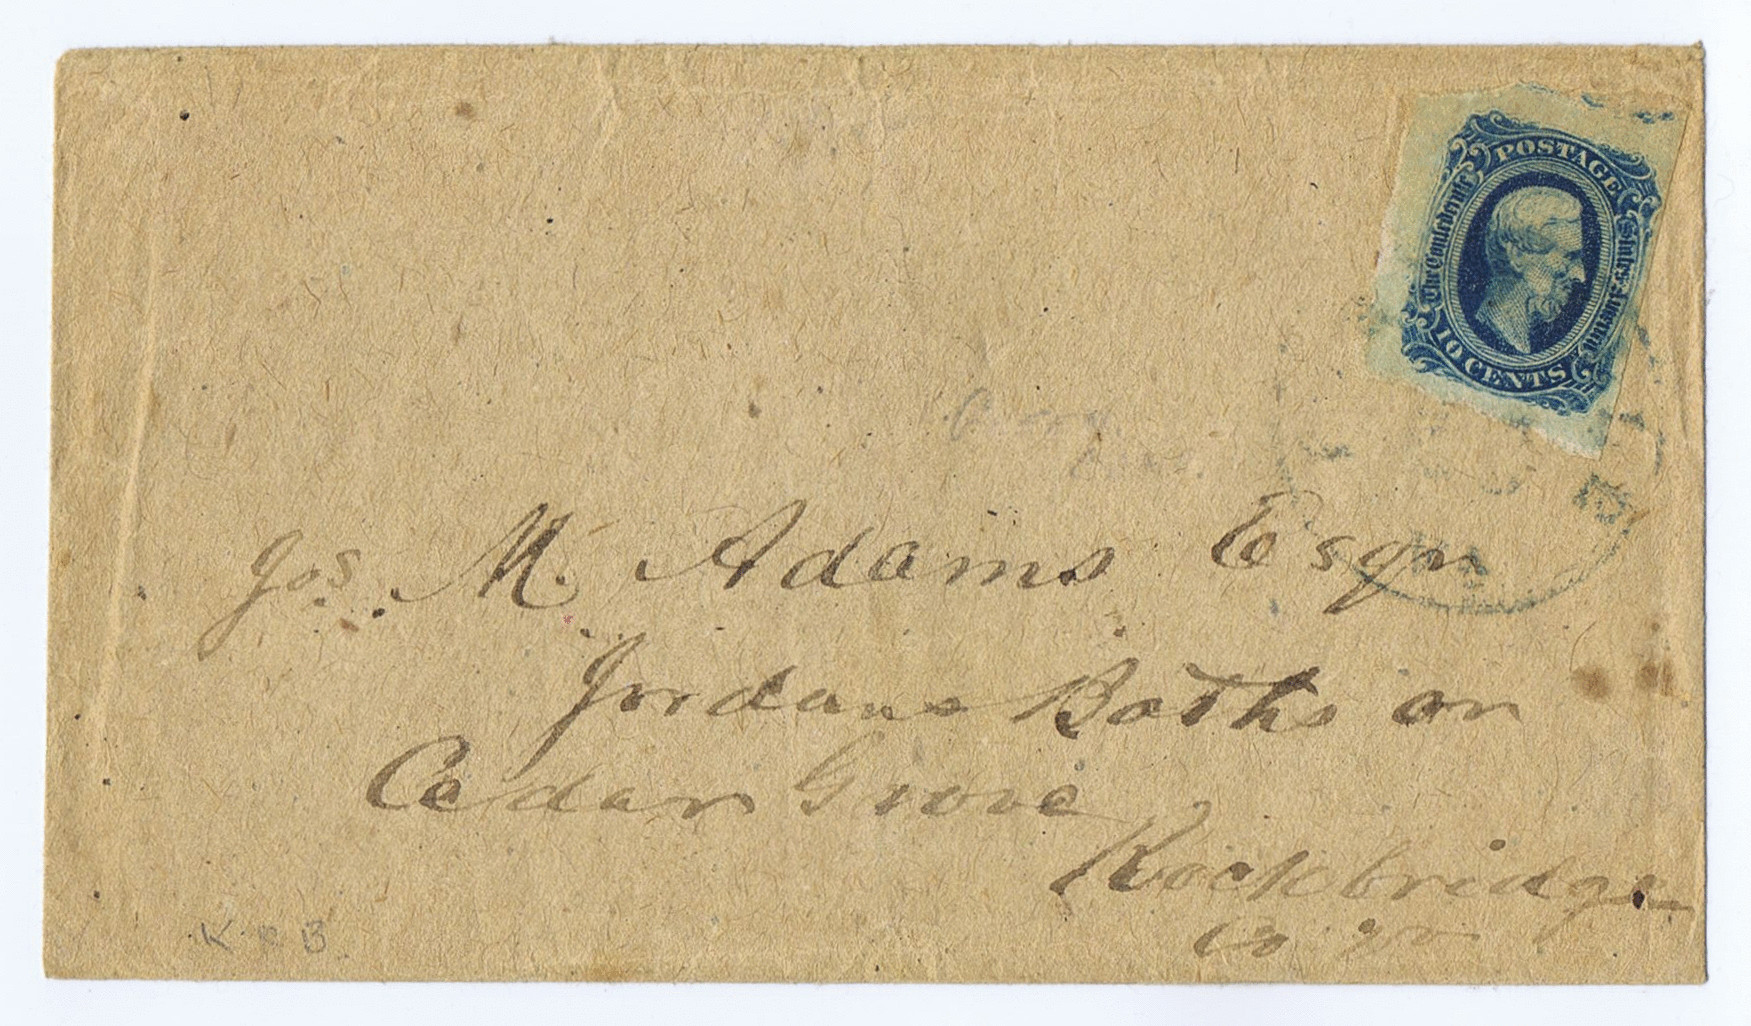 POSTAGE
The Confederate States America
10 CENTS
Jos. M. Adams Esqr
Jordans Baths or
Cedar Grove
Rockbridge
Co Va
K & B